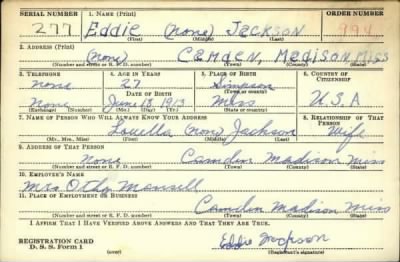 SERIAL NUMBER 1. NAME (Print) ORDER NUMBER
277 Eddie (none) Jackson 994
(First) (Middle) (Last)
2. ADDRESS (Print)
(none) Camden, Madison, Miss
(Number and street or R. F. D. number) (Town) (County) (State)
3. TELEPHONE 4. AGE IN YEARS 5. PLACE OF BIRTH 6. COUNTRY OF CITIZENSHIP
none 27 Simpson
DATE OF BIRTH (Town or county)
none June 13, 1913 Miss U.S.A
(Exchange) (Number) (Mo.) (Day) (Yr.) (State or country)
7. NAME OF PERSON WHO WILL ALWAYS KNOW YOUR ADDRESS 8. RELATIONSHIP OF THAT PERSON
Louella (non) Jackson Wife
(Mr., Mrs., Miss) (First) (Middle) (Last)
9. ADDRESS OF THAT PERSON
None Camden Madison Miss
(Number and street or R. F. D. number) (Town) (County) (State)
10. EMPLOYER'S NAME
Mrs Otho Mansell
11. PLACE OF EMPLOYMENT OR BUSINESS
Camden Madison Miss
(Number and street or R. F. D. number) (Town) (County) (State)
I AFFIRM THAT I HAVE VERIFIED ABOVE ANSWERS AND THAT THEY ARE TRUE.
REGISTRATION CARD Eddie
D. S. S. Form 1 (over) (Registrant's signature)